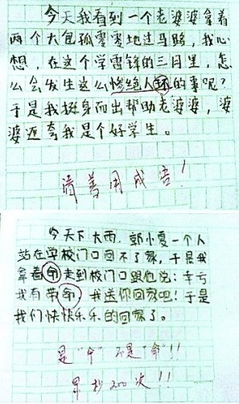 今天我看到一个老婆婆拿着
两个大包孤零零地过马路,我心
想,在这个学雷锋的三月里,怎
么会发生这么惨绝人寰的事呢?
于是我挺身而出帮助老婆婆,婆
婆还夸我是个好学生。
请善用成语!
今天下大雨,郭小雯一个人
站在学校门口回不了家,于是我
拿着命走到校门口跟她说:幸亏
我有带命,我送你回家吧!于是
我们快快乐乐的回家了。
是“伞”不是“命”!!
罚抄200次!!